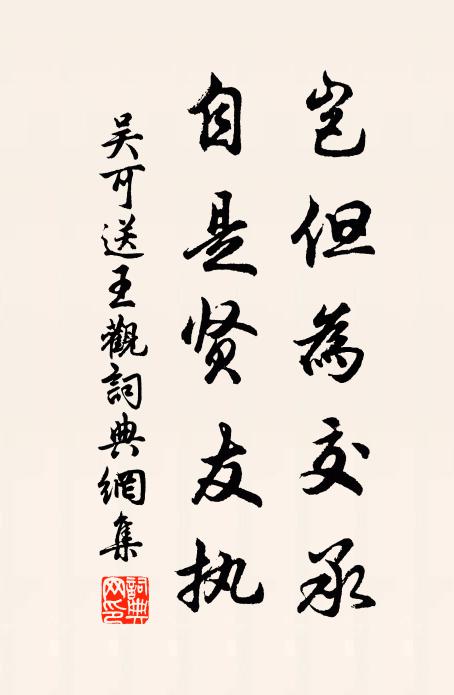 岂但為交承
自是贤友执
吴可送王觀詞典網集
詞典网印